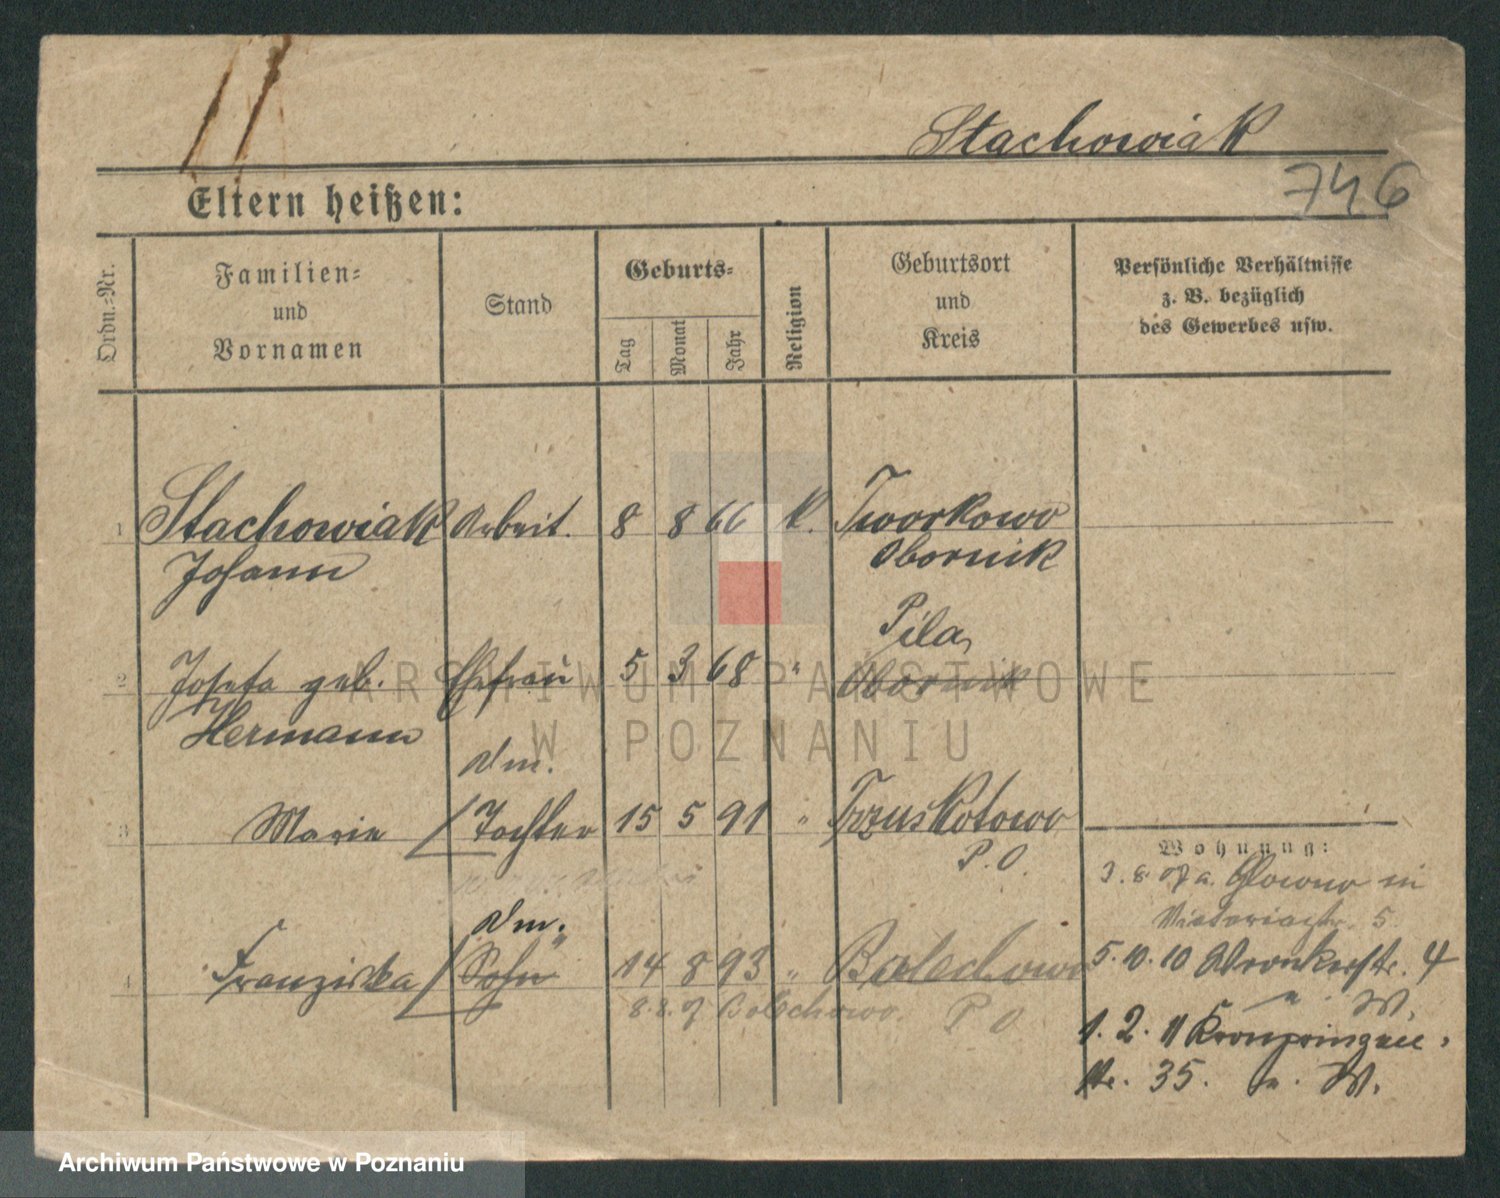 Stachowiak
746
Eltern heißen:
Ordn.-Nr.
Familien- und Vornamen
Stand
Geburts-
Tag
Monat
Jahr
Religion
Geburtsort und Kreis
Persönliche Verhältnisse
z. B. bezüglich
des Gewerbes usw.
1 Stachowiak Arbeit. 8 8 66 k. Tworkowo
Johann Obornik
Pila
2 Josefa geb. Ehefrau 5 3 68 " Obornik
Hermann
Dm.
3 Marie Tochter 15 5 91 " Trzuskotowo
P. O.
Wohnung:
3. 8. 07 a. Glowno in
Victoriastr. 5
Dm.
4 Franziska Sohn " 14 8 93 " Bolechowo
8. 8. 07 Bolechowo. P O
5. 10. 10 Wronkerstr. 4
n. W.
1. 2. 11 Kronprinzen-
str. 35. n. W.
ARCHIWUM PAŃSTWOWE
W POZNANIU
Archiwum Państwowe w Poznaniu